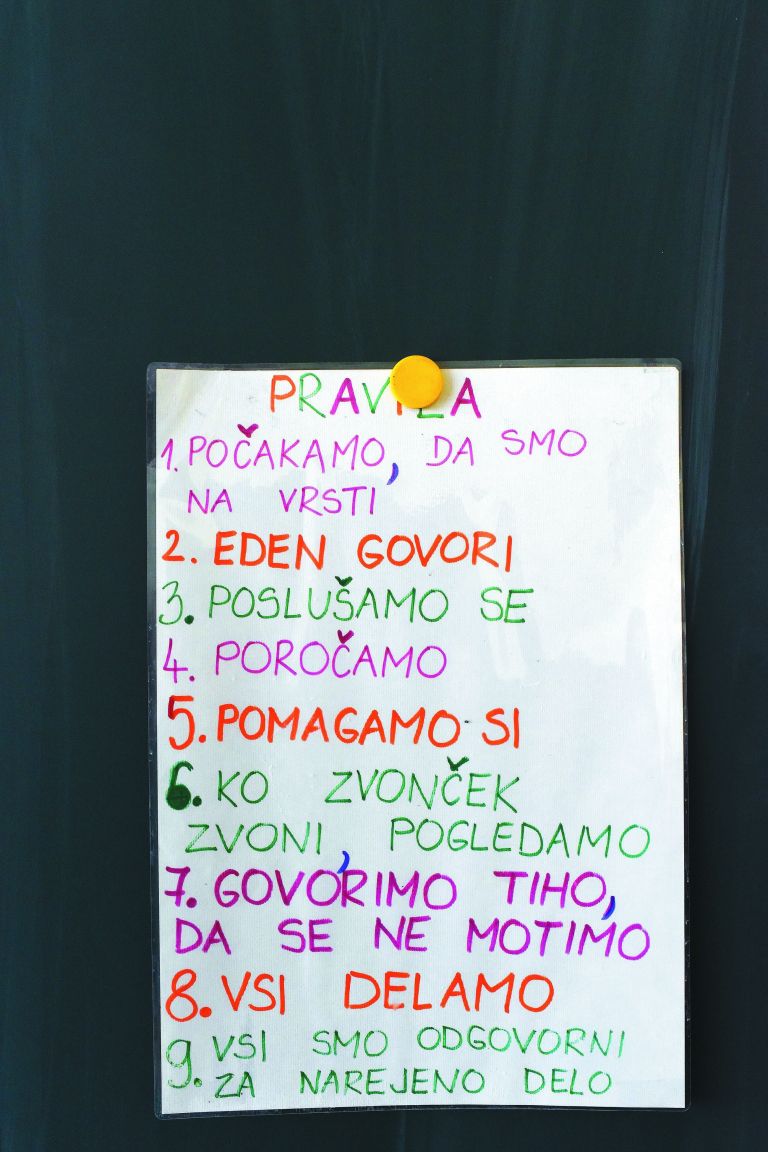 PRAVILA
1. POČAKAMO, DA SMO
NA VRSTI
2. EDEN GOVORI
3. POSLUŠAMO SE
4. POROČAMO
5. POMAGAMO SI
6. KO ZVONČEK
ZVONI, POGLEDAMO
7. GOVORIMO TIHO,
DA SE NE MOTIMO
8. VSI DELAMO
9. VSI SMO ODGOVORNI
ZA NAREJENO DELO